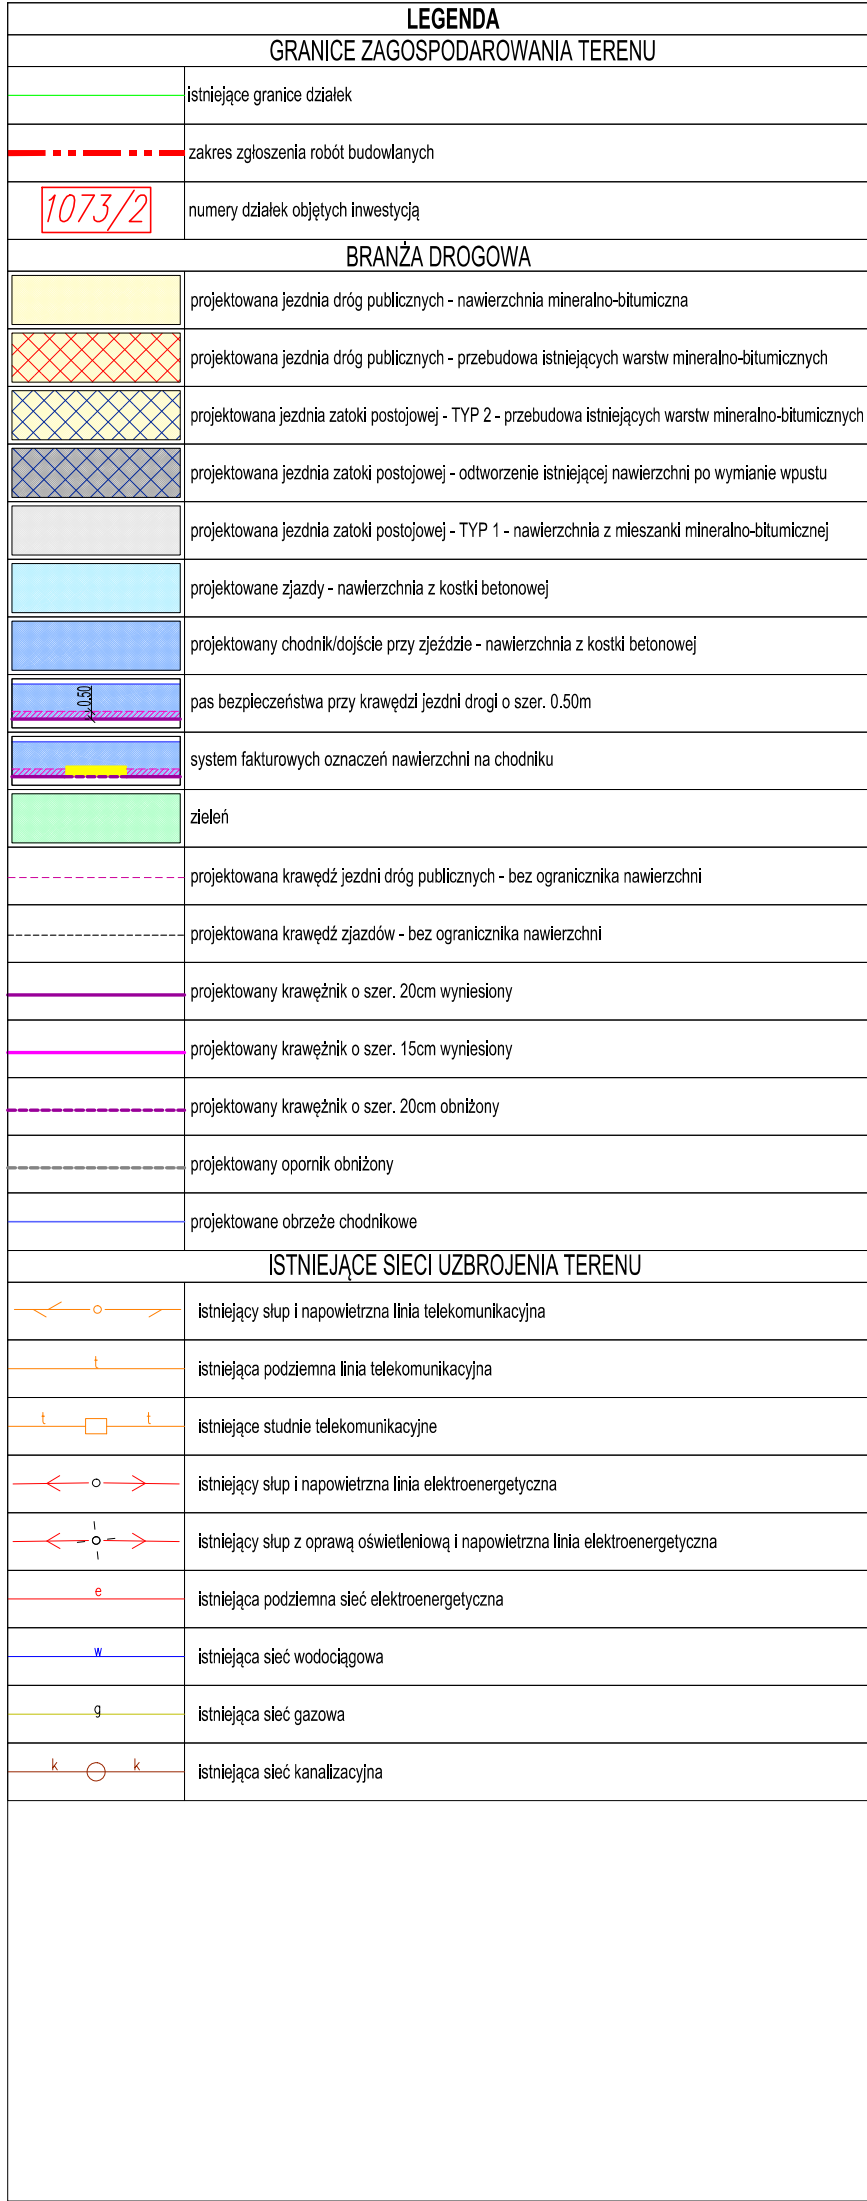 LEGENDA
GRANICE ZAGOSPODAROWANIA TERENU
istniejące granice działek
zakres zgłoszenia robót budowlanych
1073/2 numery działek objętych inwestycją
BRANŻA DROGOWA
projektowana jezdnia dróg publicznych - nawierzchnia mineralno-bitumiczna
projektowana jezdnia dróg publicznych - przebudowa istniejących warstw mineralno-bitumicznych
projektowana jezdnia zatoki postojowej - TYP 2 - przebudowa istniejących warstw mineralno-bitumicznych
projektowana jezdnia zatoki postojowej - odtworzenie istniejącej nawierzchni po wymianie wpustu
projektowana jezdnia zatoki postojowej - TYP 1 - nawierzchnia z mieszanki mineralno-bitumicznej
projektowane zjazdy - nawierzchnia z kostki betonowej
projektowany chodnik/dojście przy zjeździe - nawierzchnia z kostki betonowej
0.50 pas bezpieczeństwa przy krawędzi jezdni drogi o szer. 0.50m
system fakturowych oznaczeń nawierzchni na chodniku
zieleń
projektowana krawędź jezdni dróg publicznych - bez ogranicznika nawierzchni
projektowana krawędź zjazdów - bez ogranicznika nawierzchni
projektowany krawężnik o szer. 20cm wyniesiony
projektowany krawężnik o szer. 15cm wyniesiony
projektowany krawężnik o szer. 20cm obniżony
projektowany opornik obniżony
projektowane obrzeże chodnikowe
ISTNIEJĄCE SIECI UZBROJENIA TERENU
istniejący słup i napowietrzna linia telekomunikacyjna
t istniejąca podziemna linia telekomunikacyjna
t t istniejące studnie telekomunikacyjne
istniejący słup i napowietrzna linia elektroenergetyczna
istniejący słup z oprawą oświetleniową i napowietrzna linia elektroenergetyczna
e istniejąca podziemna sieć elektroenergetyczna
w istniejąca sieć wodociągowa
g istniejąca sieć gazowa
k k istniejąca sieć kanalizacyjna